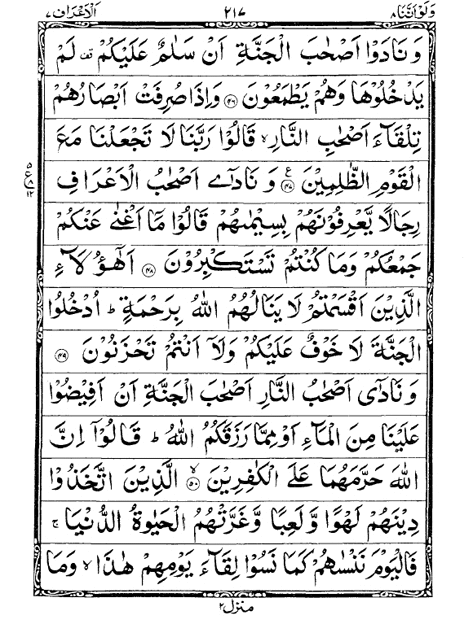 وَلَوْ اَنَّنَا ٨ ٢١٧ اَلْاَعْرَاف ٧
وَنَادَوْا اَصْحٰبَ الْجَنَّةِ اَنْ سَلٰمٌ عَلَيْكُمْ قف لَمْ
يَدْخُلُوْهَا وَهُمْ يَطْمَعُوْنَ ﴿۴۶﴾ وَاِذَا صُرِفَتْ اَبْصَارُهُمْ
تِلْقَآءَ اَصْحٰبِ النَّارِ لا قَالُوْا رَبَّنَا لَا تَجْعَلْنَا مَعَ
الْقَوْمِ الظّٰلِمِيْنَ ﴿۴۷﴾ ع وَنَادٰٓى اَصْحٰبُ الْاَعْرَافِ
رِجَالًا يَّعْرِفُوْنَهُمْ بِسِيْمٰىهُمْ قَالُوْا مَاۤ اَغْنٰى عَنْكُمْ
جَمْعُكُمْ وَمَا كُنْتُمْ تَسْتَكْبِرُوْنَ ﴿۴۸﴾ اَهٰۤؤُلَآءِ
الَّذِيْنَ اَقْسَمْتُمْ لَا يَنَالُهُمُ اللهُ بِرَحْمَةٍ ط اُدْخُلُوا
الْجَنَّةَ لَا خَوْفٌ عَلَيْكُمْ وَلَاۤ اَنْتُمْ تَحْزَنُوْنَ ﴿۴۹﴾
وَنَادٰٓى اَصْحٰبُ النَّارِ اَصْحٰبَ الْجَنَّةِ اَنْ اَفِيْضُوْا
عَلَيْنَا مِنَ الْمَآءِ اَوْ مِمَّا رَزَقَكُمُ اللهُ ط قَالُوْۤا اِنَّ
اللهَ حَرَّمَهُمَا عَلَى الْكٰفِرِيْنَ ﴿۵۰﴾ لا الَّذِيْنَ اتَّخَذُوْا
دِيْنَهُمْ لَهْوًا وَّلَعِبًا وَّغَرَّتْهُمُ الْحَيٰوةُ الدُّنْيَا ج
فَالْيَوْمَ نَنْسٰىهُمْ كَمَا نَسُوْا لِقَآءَ يَوْمِهِمْ هٰذَا لا وَمَا
منزل ٢